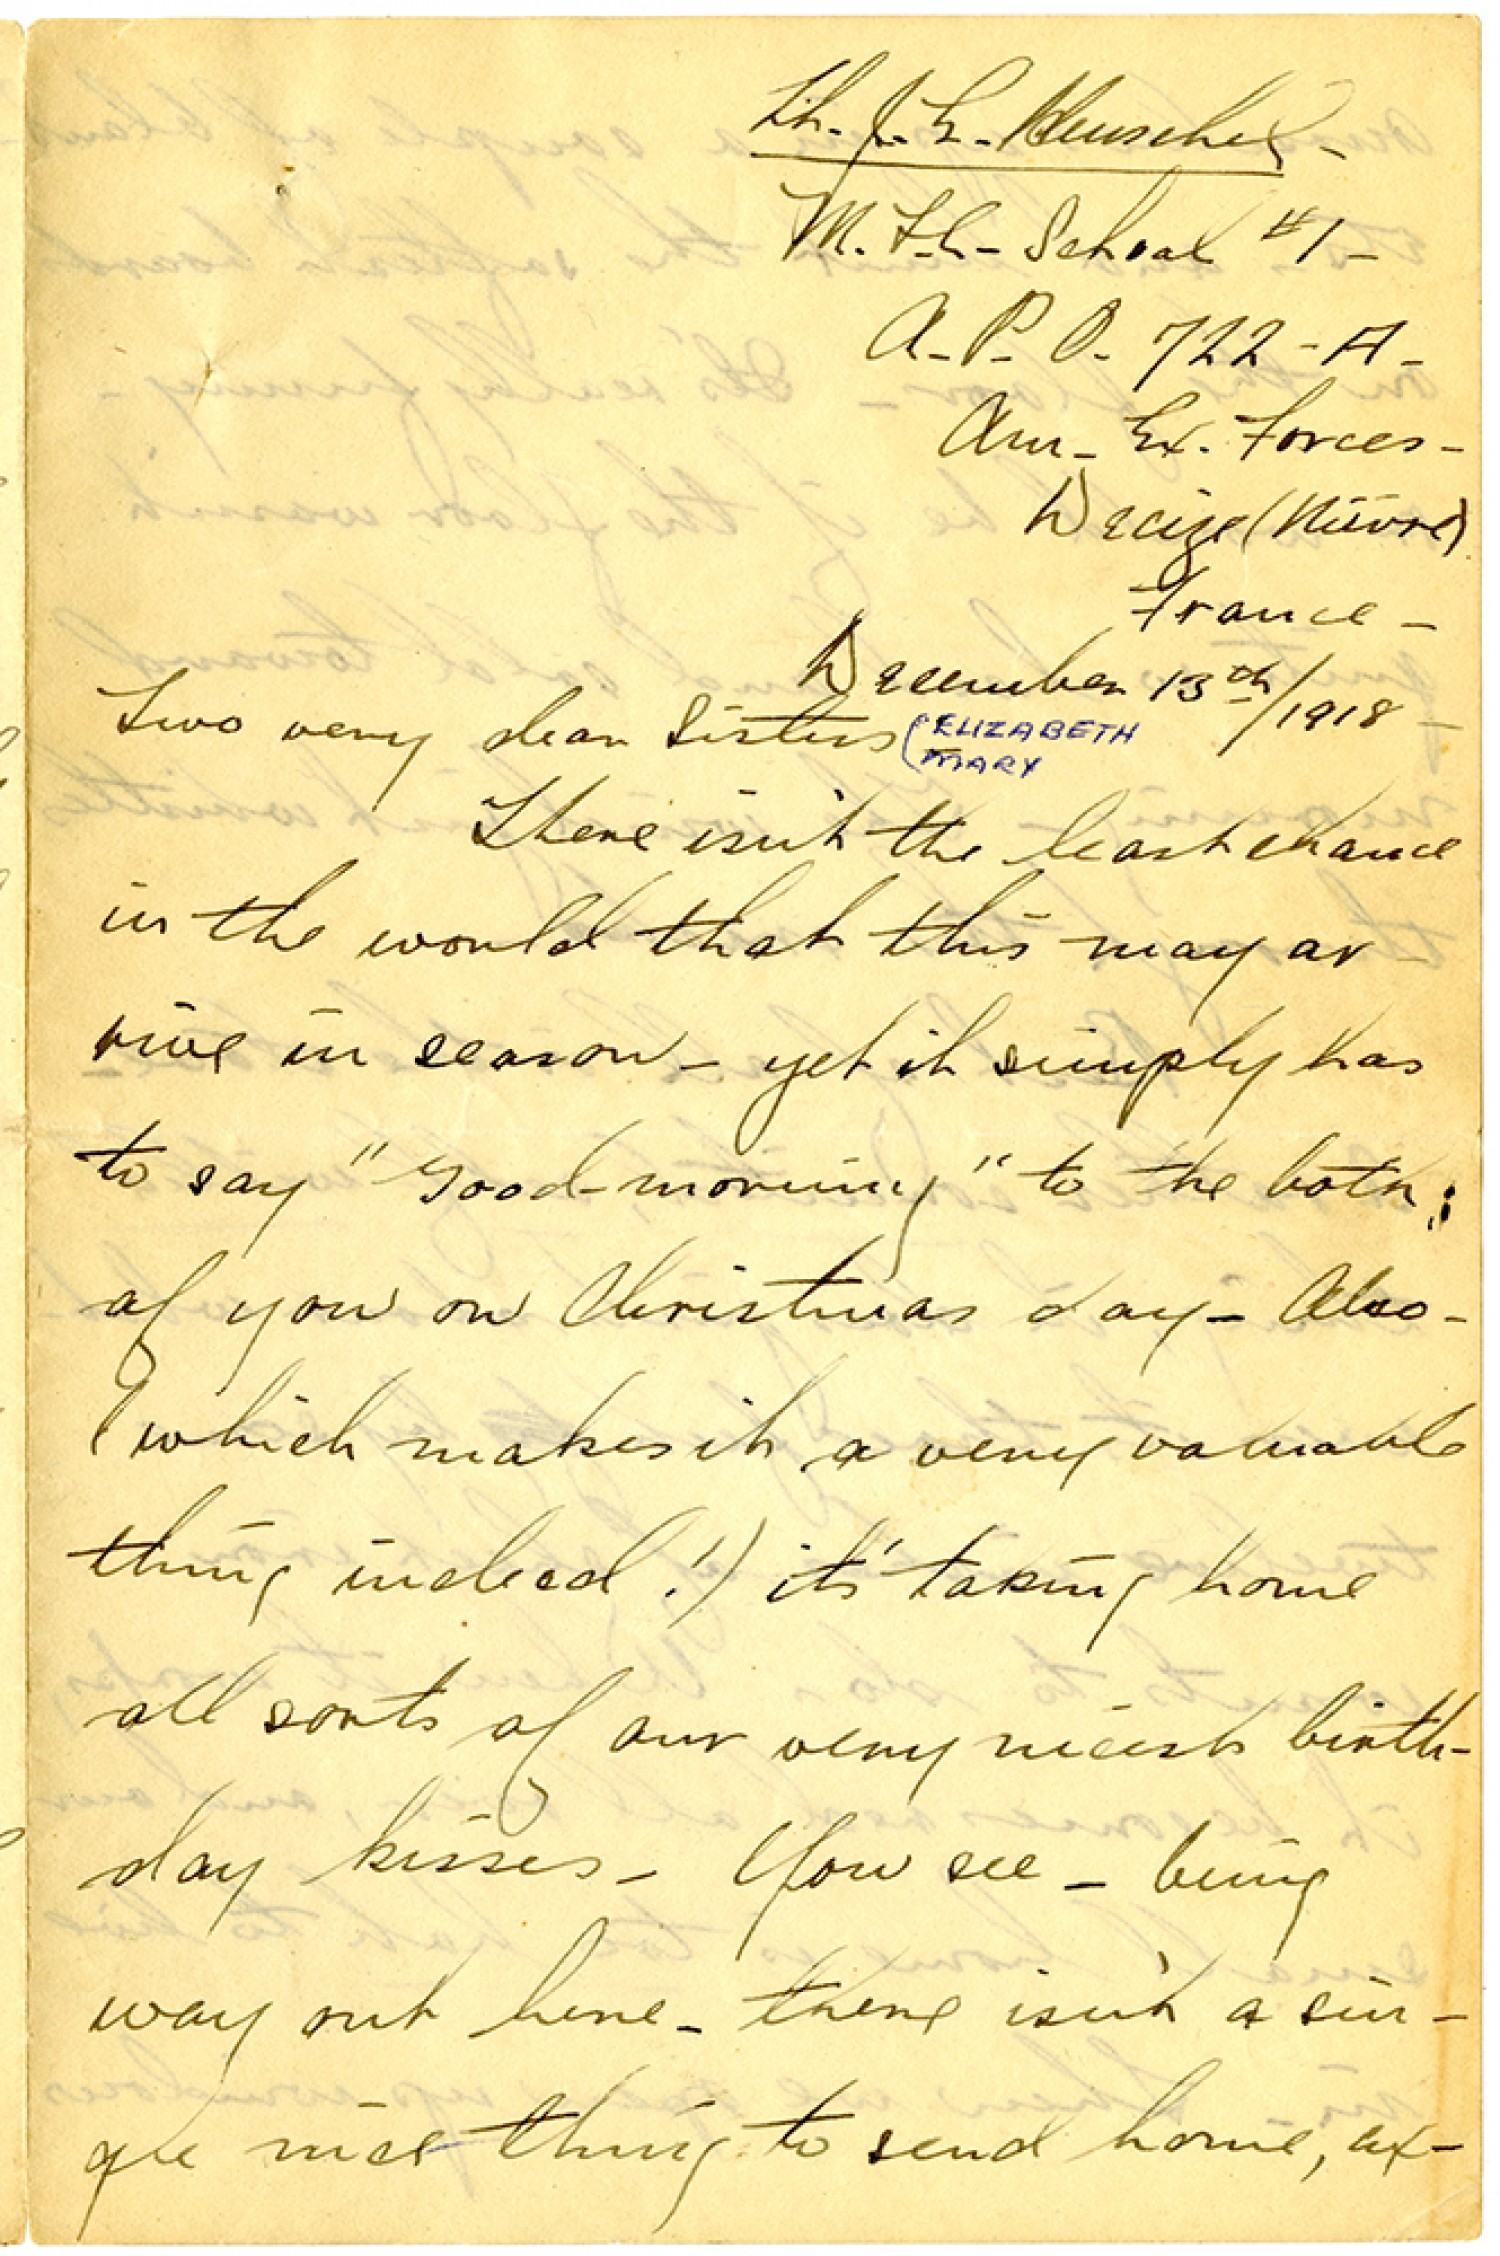 Lt. J. E. Henschel -
M. T. C - School #1 -
A. P. O. 722 - A -
Am - Ex. Forces -
Decize (Nièvre)
France -
December 13th/1918 -
Two very dear Sisters (ELIZABETH
MARY
There isn't the least chance
in the world that this may ar-
rive in season - yet it simply has
to say "Good-morning" to the both
of you on Christmas day - Also -
(which makes it a very valuable
thing indeed!) it's taking home
all sorts of our very nicest birth-
day kisses - You see - being
way out here - there isn't a sin-
gle nice thing to send home, ex-